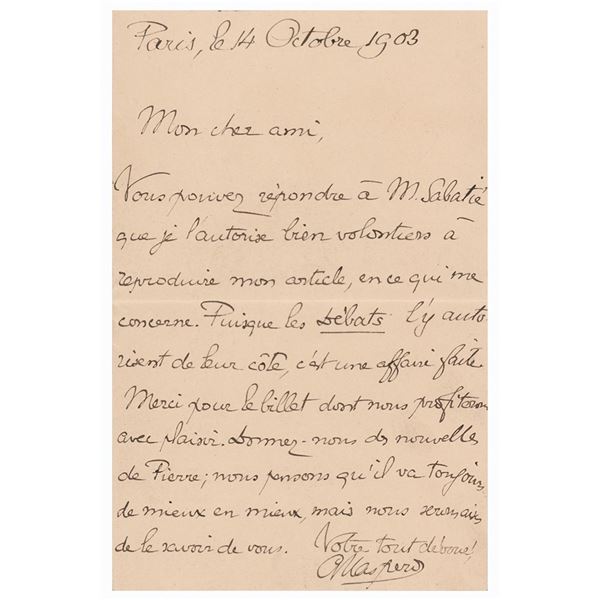 Paris, le 14 Octobre 1903
Mon cher ami,
Vous pouvez répondre à M. Sabatié
que je l'autorise bien volontiers à
reproduire mon article, en ce qui me
concerne. Puisque les Débats l'y auto-
risent de leur côté, c'est une affaire faite
Merci pour le billet dont nous profiterons
avec plaisir. Donnez-nous des nouvelles
de Pierre; nous pensons qu'il va toujours
de mieux en mieux, mais nous serions aises
de le savoir de vous. Votre tout dévoué,
GMaspero